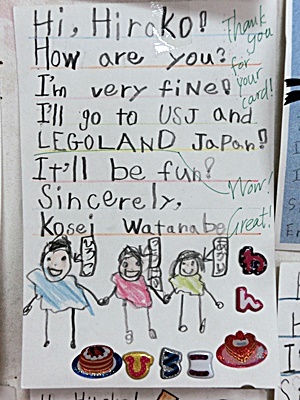 Hi, Hiroko!
How are you?
I'm very fine!
I'll go to USJ and
LEGOLAND Japan!
It'll be fun!
Sincerely,
Kosei Watanabe
Thank
you
for
your
card!
Wow!
Great!